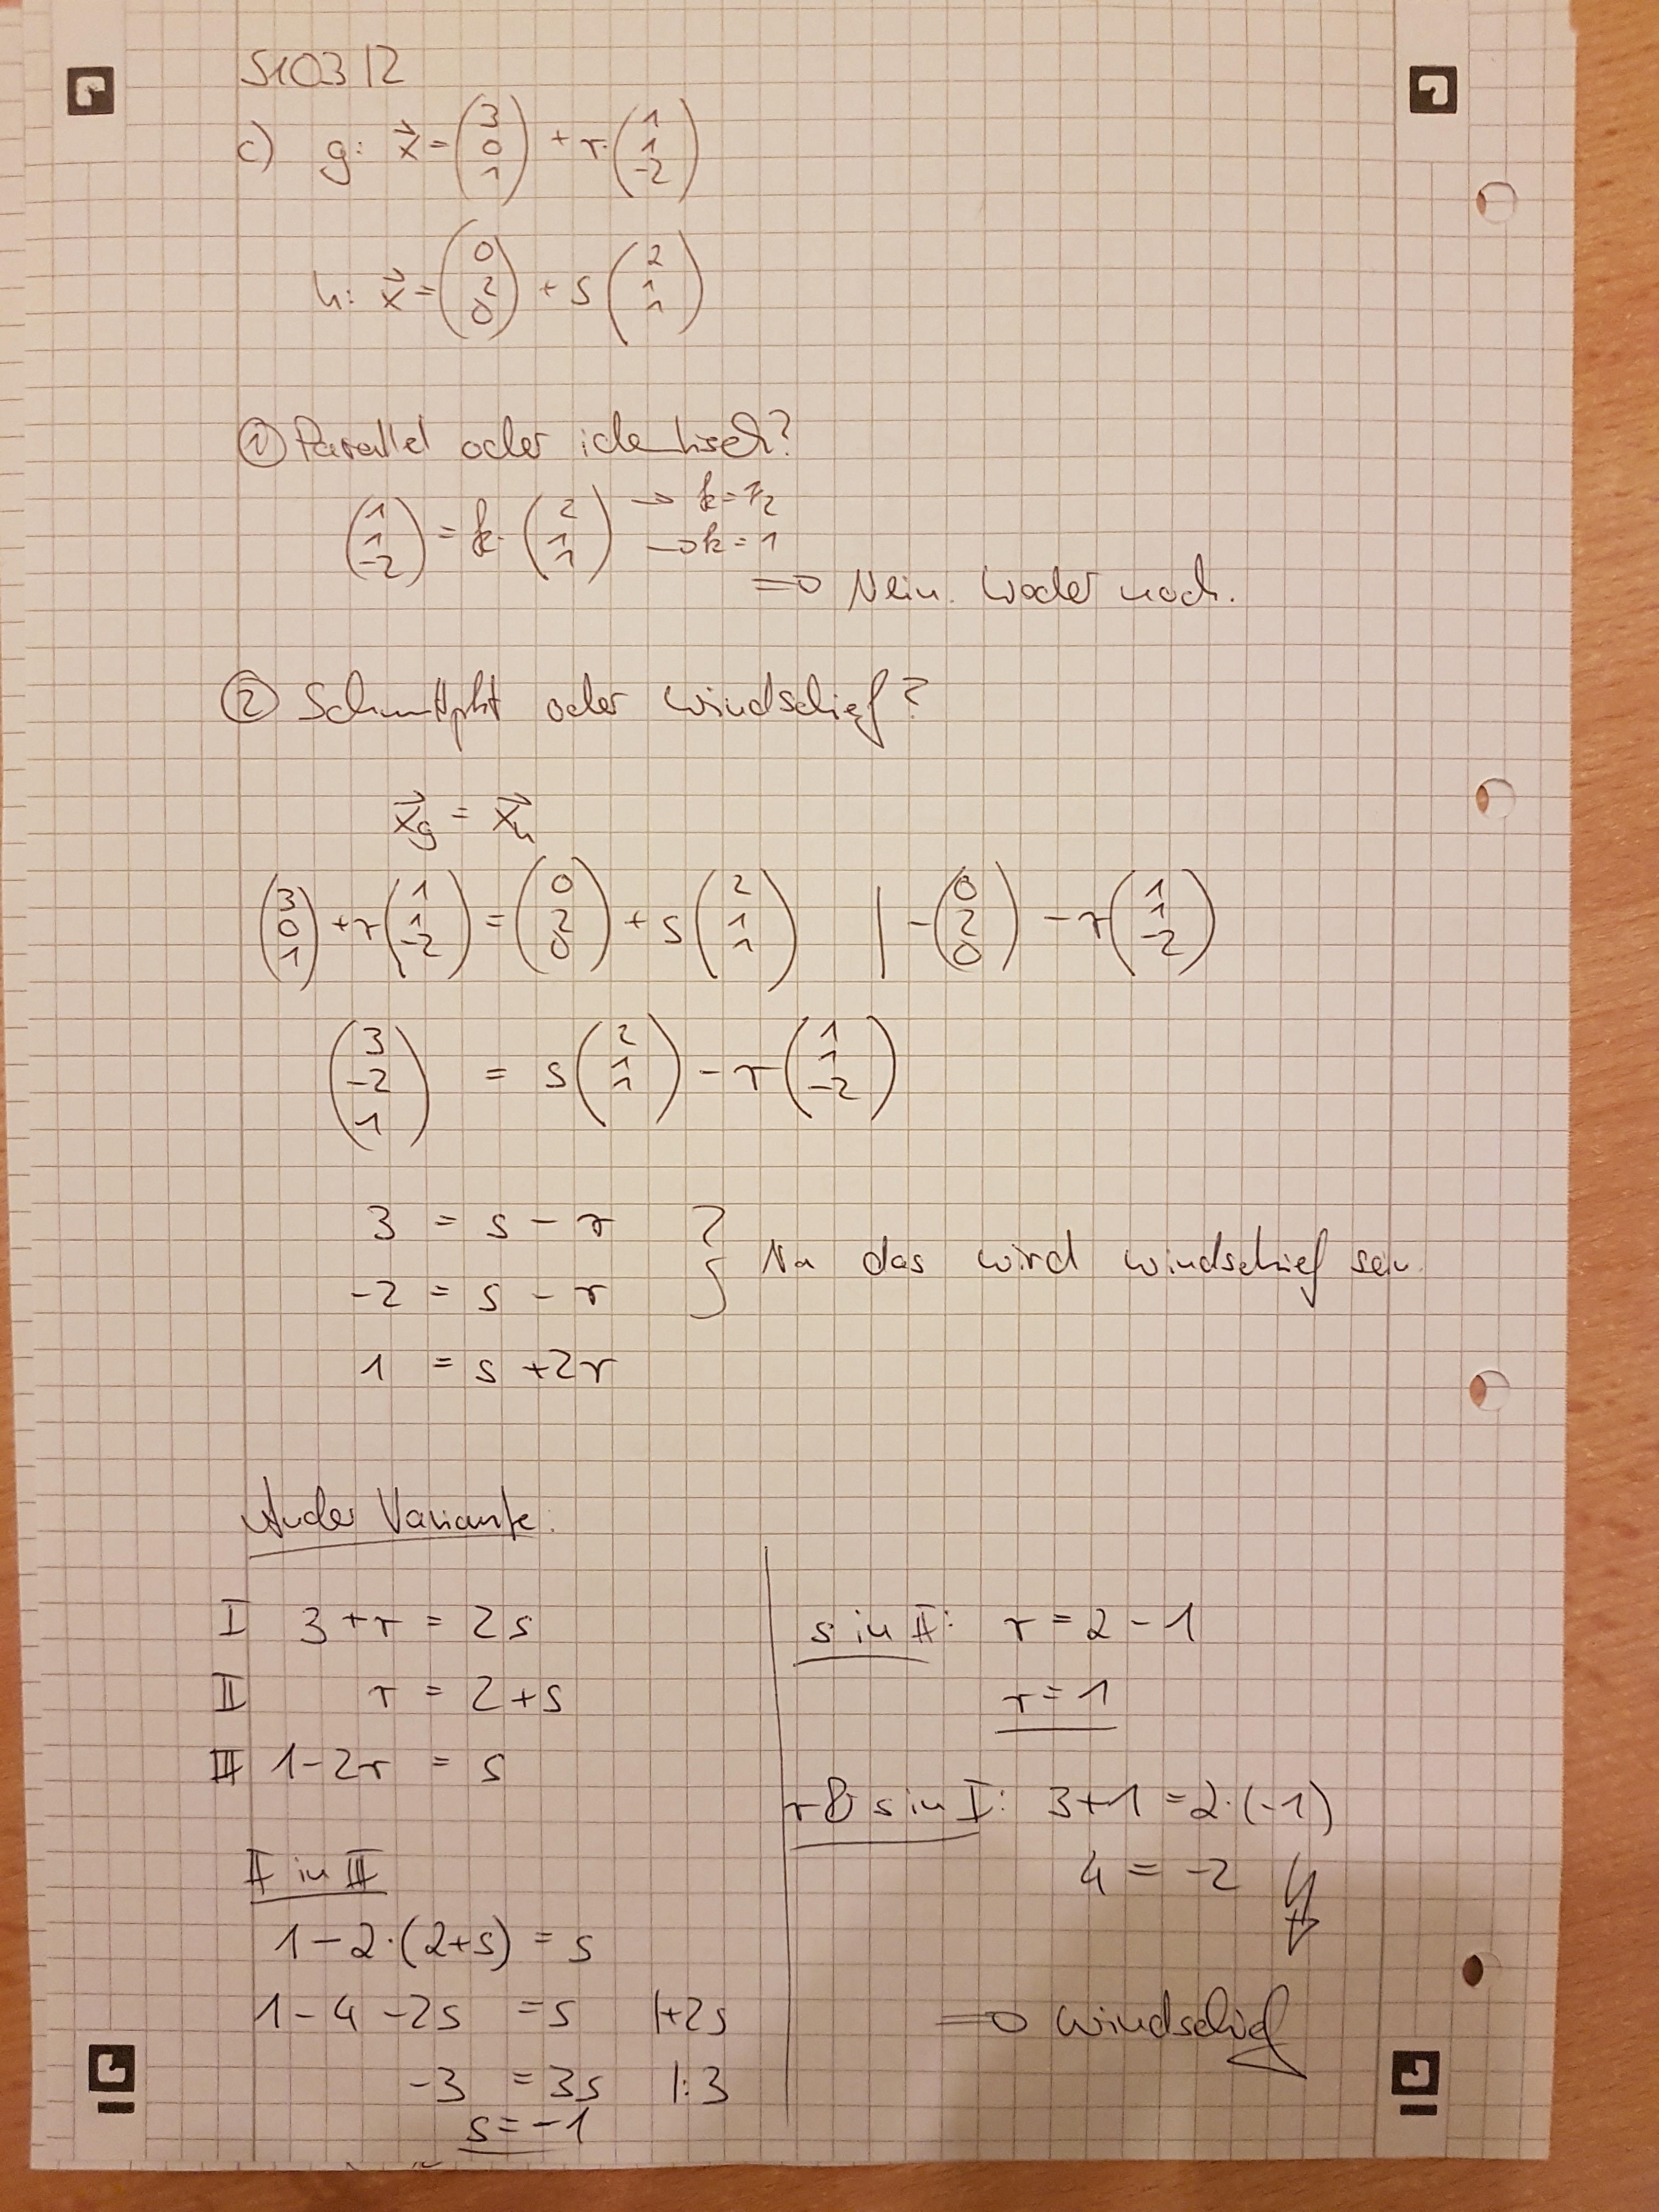 S103/2
c) g: x⃗ = (3 0 1) + r·(1 1 -2)
h: x⃗ = (0 2 0) + s (2 1 1)
① Parallel oder identisch?
(1 1 -2) = k·(2 1 1) → k = 1/2
→ k = 1
⇒ Nein. Weder noch.
② Schnittpkt oder windschief?
x⃗g = x⃗h
(3 0 1) + r (1 1 -2) = (0 2 0) + s (2 1 1) | - (0 2 0) - r (1 1 -2)
(3 -2 1) = s (2 1 1) - r (1 1 -2)
3 = s - r
-2 = s - r } Na das wird windschief sein.
1 = s + 2r
Ander Variante:
I 3 + r = 2s
II r = 2 + s
III 1 - 2r = s
II in III
1 - 2·(2+s) = s
1 - 4 - 2s = s |+2s
-3 = 3s |:3
s = -1
s in II: r = 2 - 1
r = 1
r & s in I: 3 + 1 = 2·(-1)
4 = -2 ↯
⇒ windschief